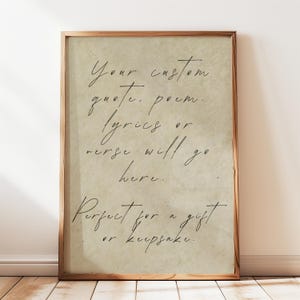 Your custom
quote, poem,
lyrics or
verse will go
here.
Perfect for a gift
or keepsake.